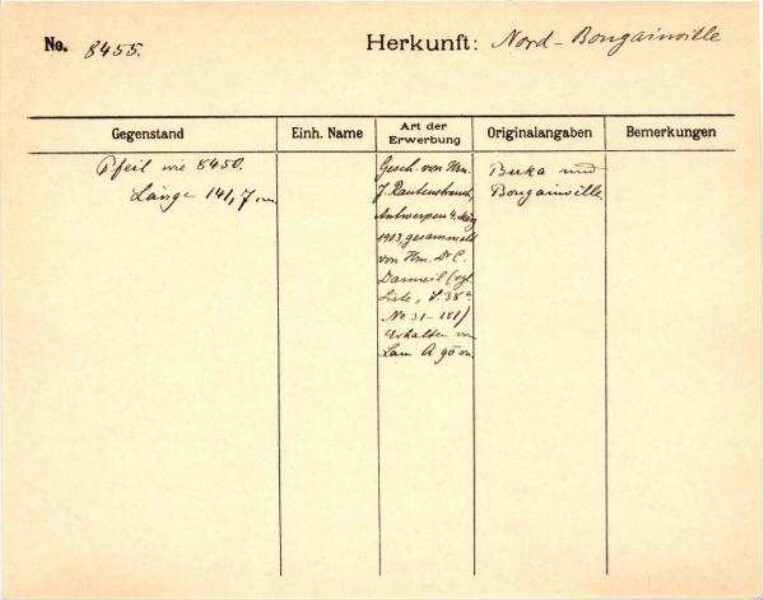 No. 8455. Herkunft: Nord-Bougainville
Gegenstand Einh. Name Art der Erwerbung Originalangaben Bemerkungen
Pfeil wie 8450.
Länge 141,7 cm
Gesch. von Hrn.
J. Rautenstrauch,
Antwerpen 4. März
1903, gesammelt
von Hrn. Dr C.
(vgl.
Liste, S. 38a
No 31-181)
Erhalten von
Buka und
Bougainville